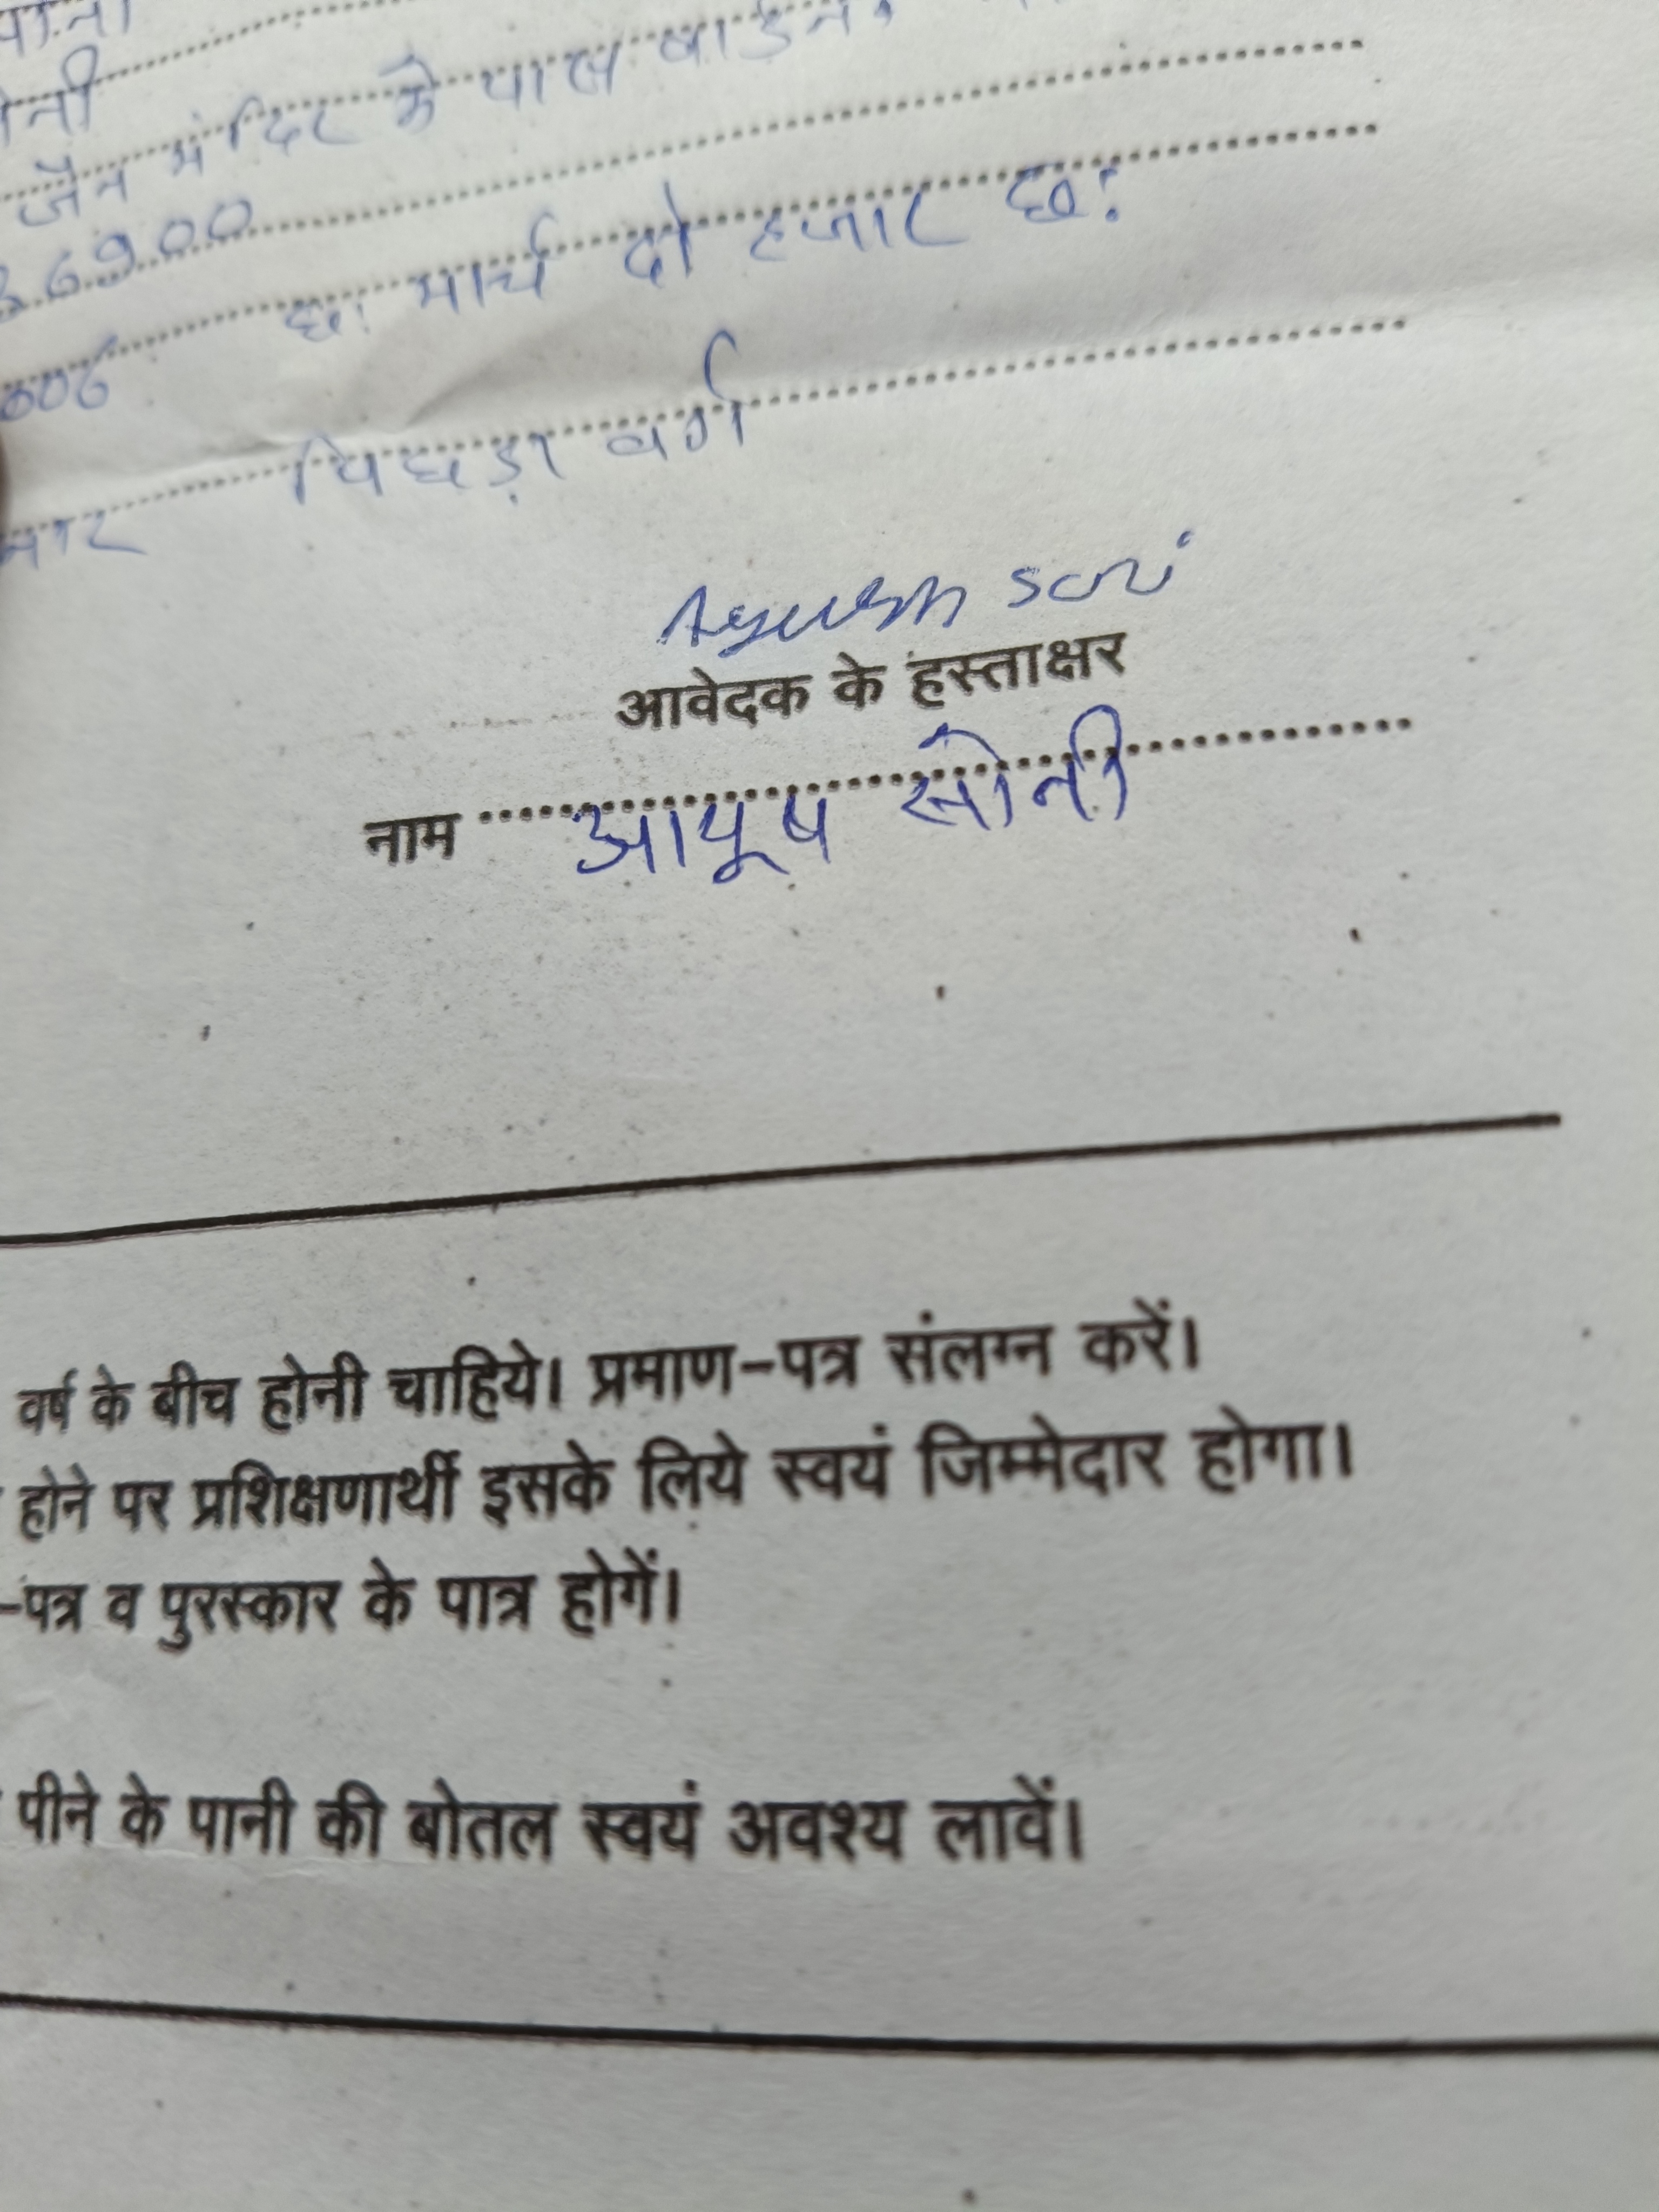 सोनी
जैन मंदिर के पास वार्ड नं.
छः मार्च दो हजार छः
पिछड़ा वर्ग
Ayush soni
आवेदक के हस्ताक्षर
नाम आयूष सोनी
वर्ष के बीच होनी चाहिये। प्रमाण-पत्र संलग्न करें।
होने पर प्रशिक्षणार्थी इसके लिये स्वयं जिम्मेदार होगा।
-पत्र व पुरस्कार के पात्र होगें।
पीने के पानी की बोतल स्वयं अवश्य लावें।